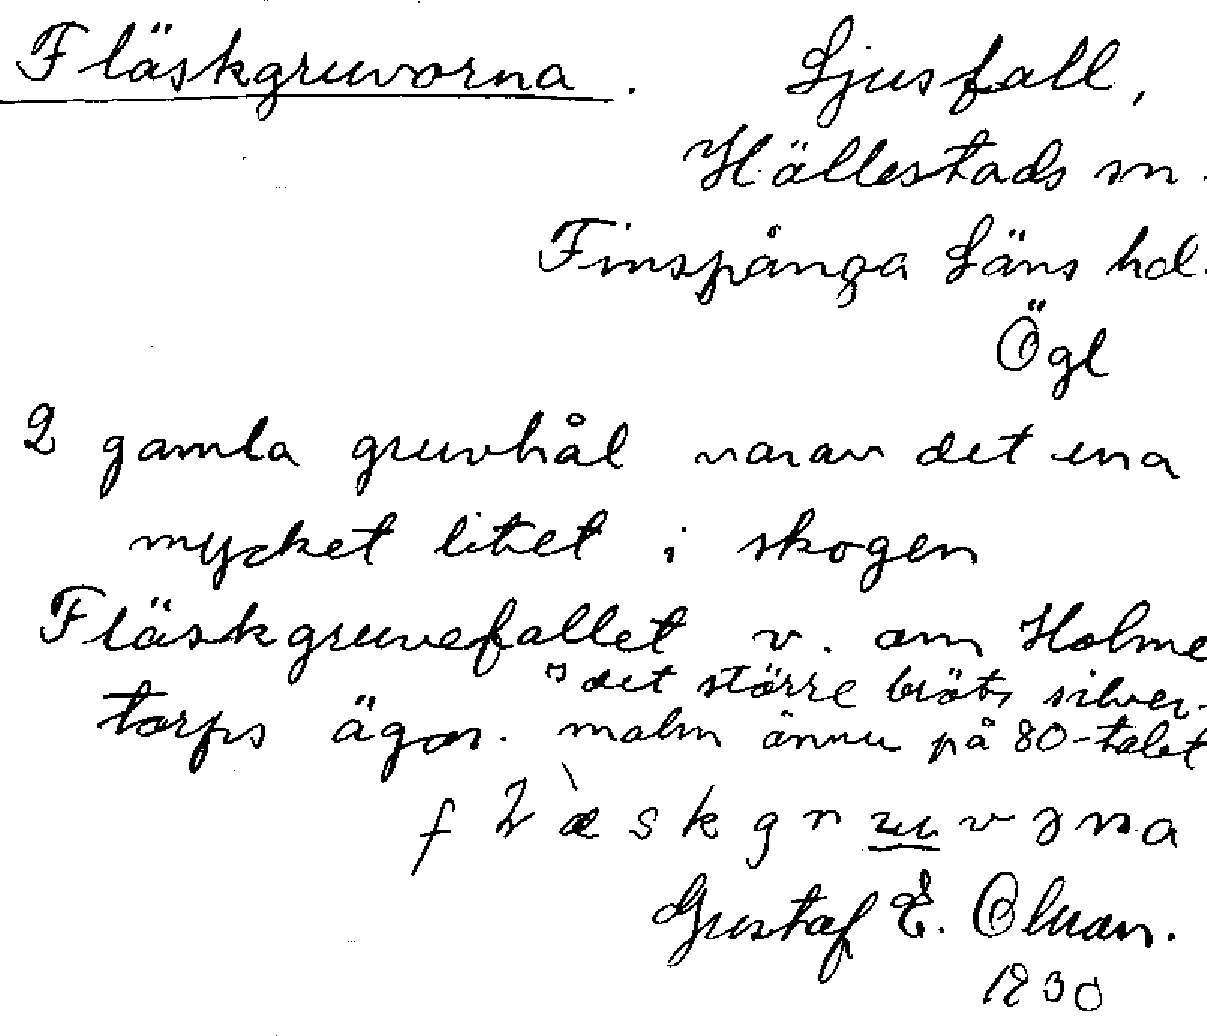 Fläskgruvorna. Ljusfall,
Hällestads sn.
Finspånga Läns hd.
Ögl
2 gamla gruvhål varav det ena
mycket litet i skogen
Fläskgruvefallet v. om Holme
torps ägor.
det större bröts silver-
malm ännu på 80-talet
Gustaf E.
1930